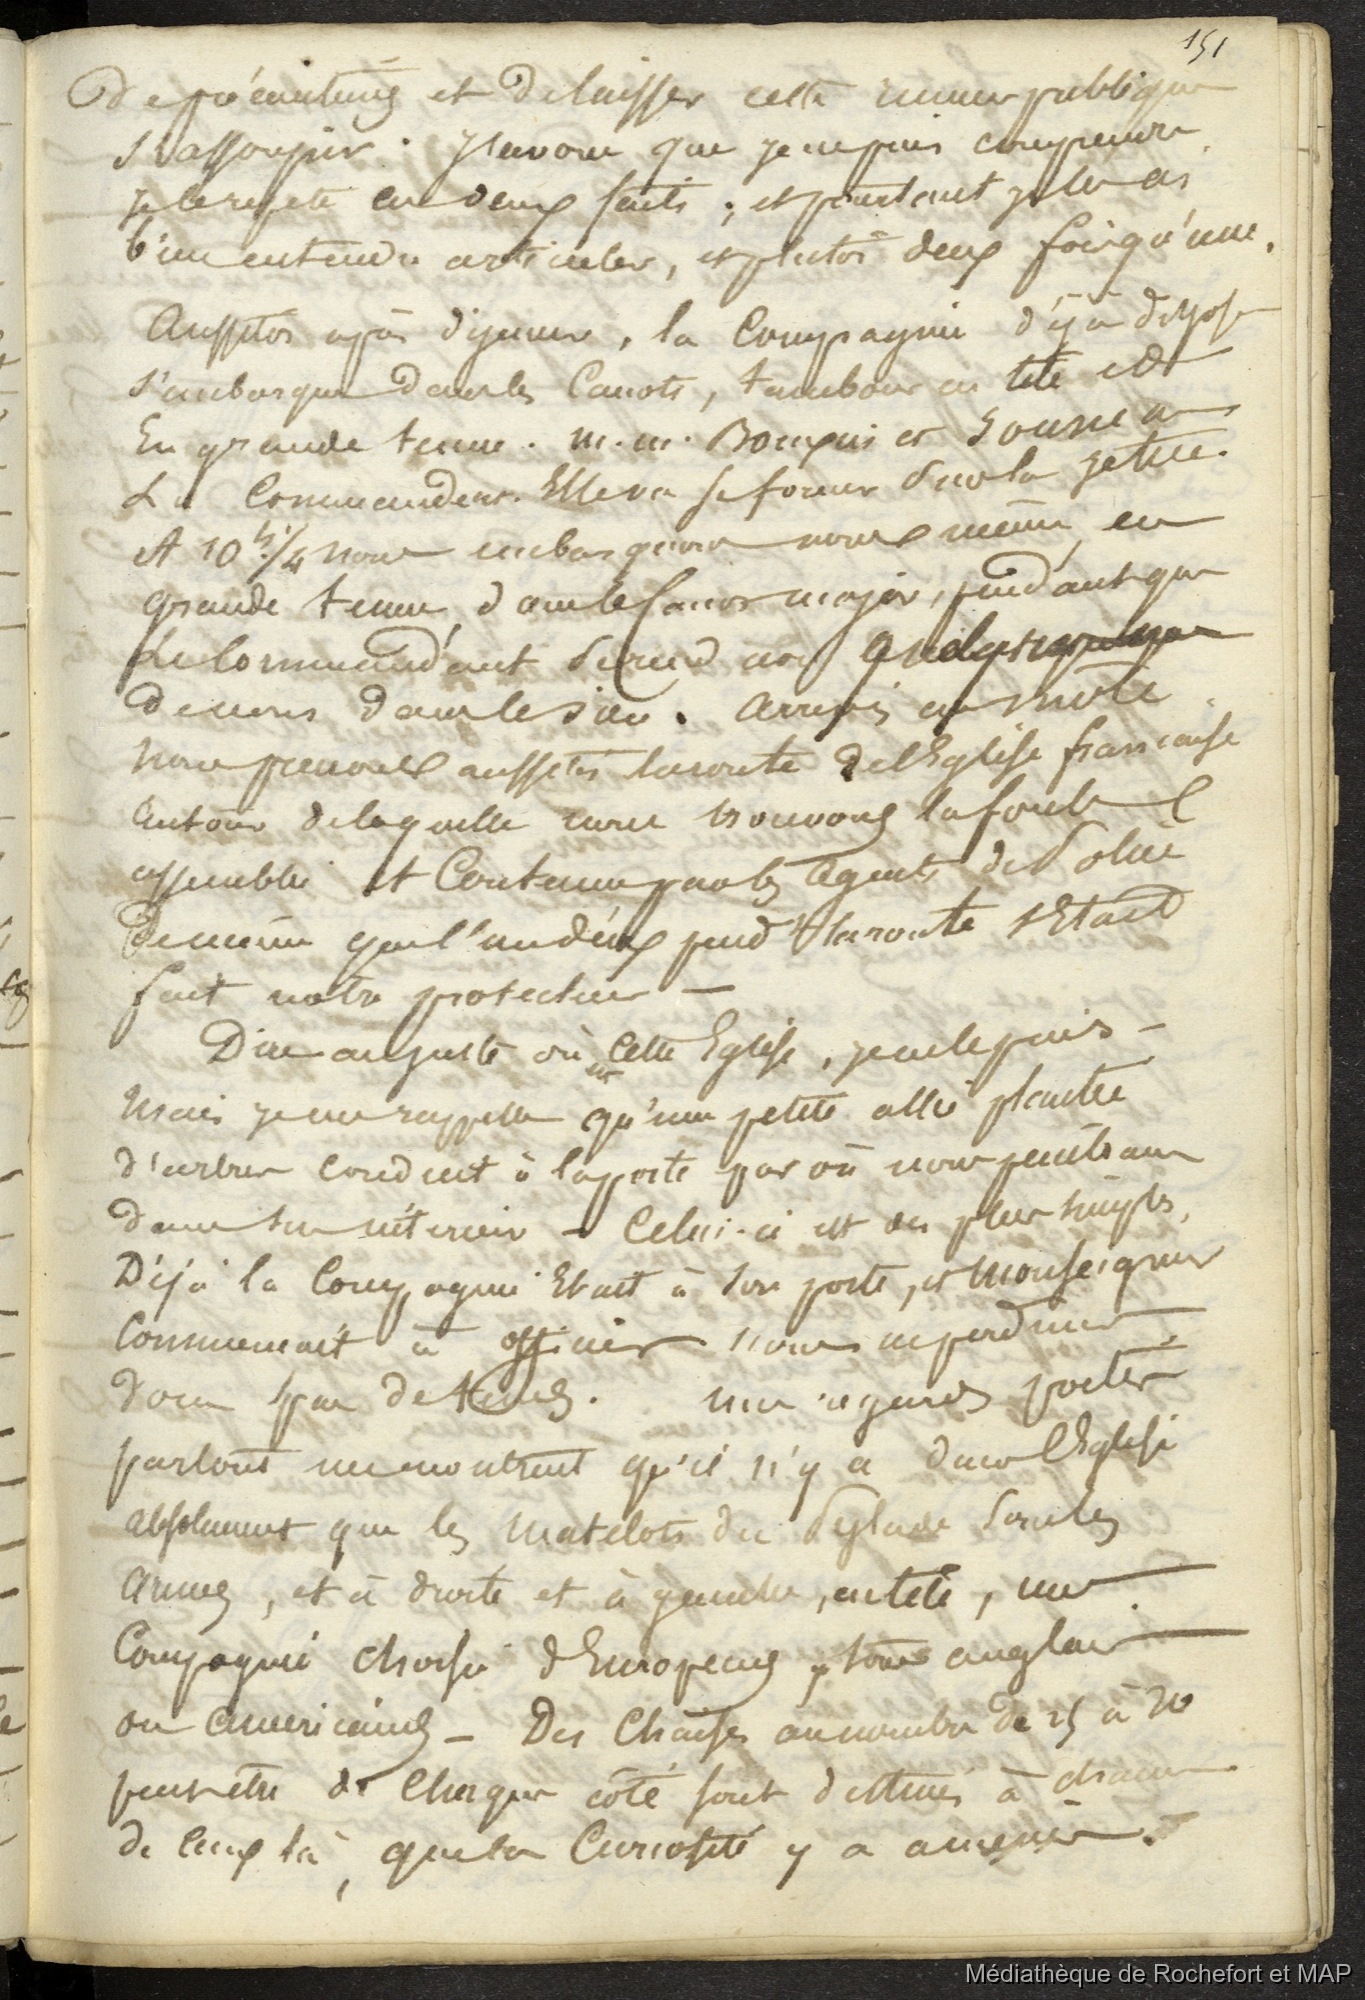 151
de précautions et de laisser cette rumeur publique
s'assoupir. J'avoue que je ne puis comprendre
; et pourtant je les ai
bien entendu articuler, et plutôt deux fois qu'une.
Aussitôt après déjeuner, la Compagnie déjà dispose
s'embarque dans les Canots, tambour en tête et
En grande tenue. M.M. et
La Commandent. Elle va se former sur la jetée.
A 10 h 1/4 nous embarquons nous même en
grande tenue, dans le Canot major, pendant que
Le Commandant se rend avec
de nous dans le sien. Arrivés au môle
nous prenons aussitôt la route de l'Eglise française
autour de laquelle nous trouvons la foule
assemblée et Contenue par les agents de Police
de même que l'un d'eux pend.t la route s'Etait
fait notre protecteur —
Dire au juste où est cette Eglise, je ne le puis —
Mais je me rappelle qu'une petite allée plantée
d'arbres conduit à la porte par où nous pénétrons
dans son intérieur — Celui-ci est des plus simples,
Déjà la Compagnie Etait à son poste, et Monseigneur
Commencait à officier nous ne perdimes
donc pas de tems. Mes regards portés
partout me montrent qu'il n'y a dans l'Eglise
absolument que les Matelots du sous les
armes, et à droite et à gauche, en tête, une
Compagnie choisie d'Europeens, tous anglais
ou américains — Des Chaises au nombre de 25 à 30
peut-être de Chaque côté sont destinées à chacun
de ceux là, que la Curiosité y a amenés.
Médiathèque de Rochefort et MAP